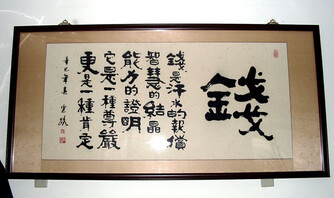 錢
錢是汗水的報償
智慧的結晶
能力的證明
它是一種尊嚴
更是一種肯定
辛巳年夏